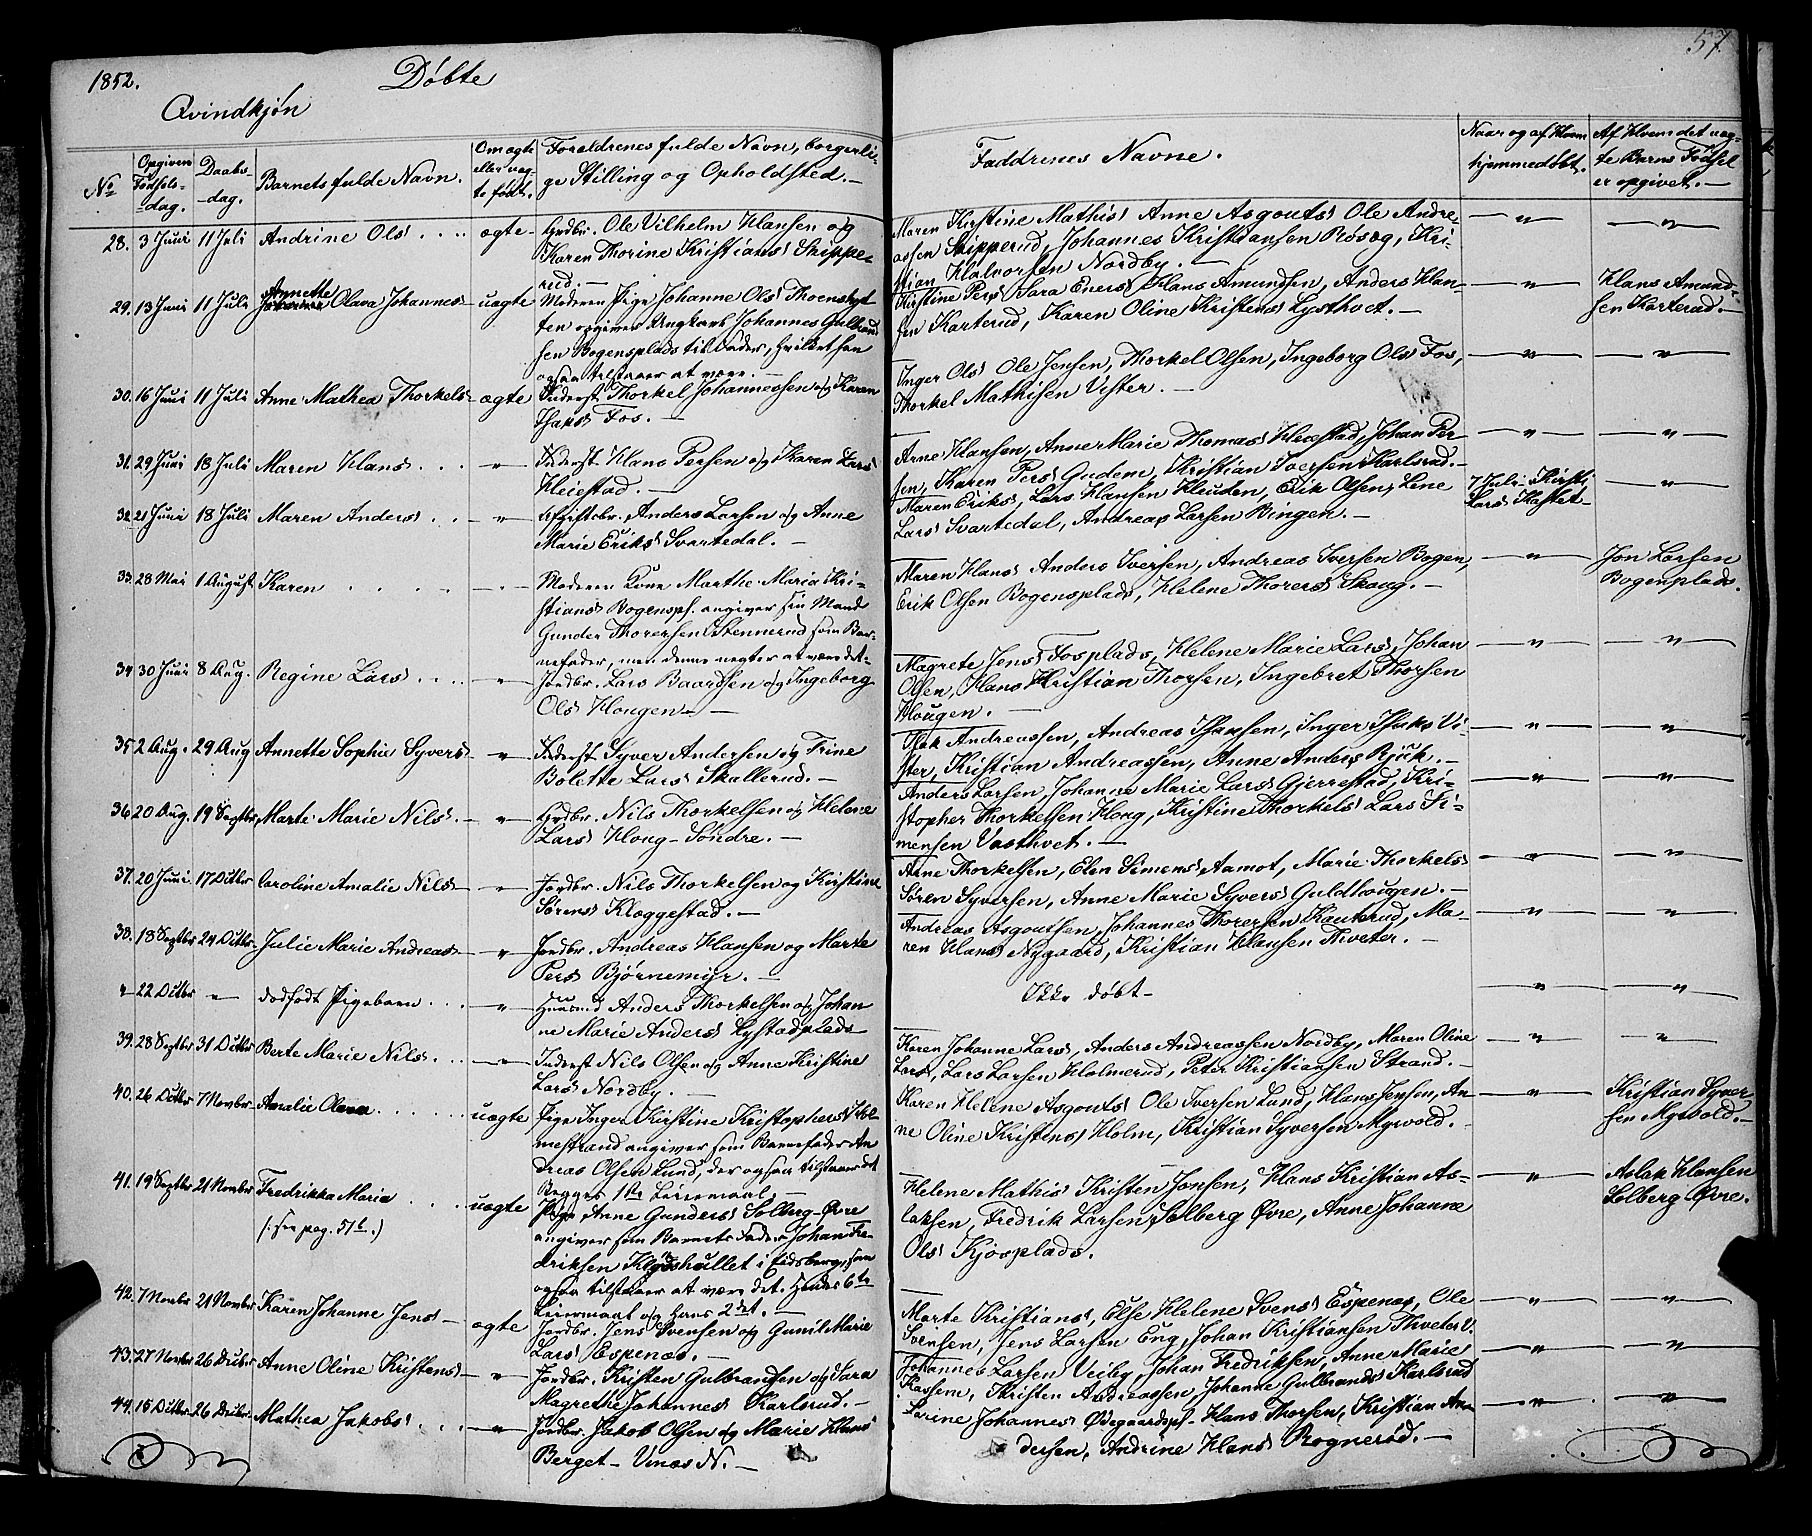 1852. Døbte
Qvindkjøn
57.
No
Opgiven Fødsels-dag.
Daabs-dag.
Barnets fulde Navn.
Om ægte eller uægte født.
Forældrenes fulde Navn, borgerlige Stilling og Opholdsted.
Faddrenes Navne.
Naar og af Hvem hjemmedøbt.
Af Hvem det uægte Barns Fødsel er opgivet.
28. 3 Juni 11 Juli Andrine Ols ægte Grdbr. Ole Vilhelm Hansen og
Karen Thorine Kristians Skippe-
rud.
Maren Kirstine Mathis Anne Asgouts Ole Andre-
assen Skipperud, Johannes Kristiansen Røsæg, Kri-
stian Halvorsen Nordby.
29. 13 Juni 11 Juli Annette Olava Johannes uægte Moderen Pige Johanne Ols Thoenshyt
ten opgiver Ungkarl Johannes Gulbrand
sen Bogensplads til Fader, hvilket han
ogsaa tilstaaer at være.
Kirstine Pers Sara Eners Hans Amundsen, Anders Han-
sen Karterud, Karen Oline Kristens Lysthvet.
Hans Amund-
sen Karterud.
30. 16 Juni 11 Juli Anne Mathea Thorkels ægte Inderst Thorkel Johannessen og Karen
Isaks Fos.
Inger Ols Ole Jensen, Thorkel Olsen, Ingeborg Ols Fos,
Thorkel Mathisen Vister.
31. 29 Juni 18 Juli Maren Hans Inderst Hans Persen og Karen Lars
Heiestad.
Arne Hansen, Anne Marie Thomas Heiestad, Johan Per-
sen, Karen Pers Gudem, Kristian Iversen Karlsrud.
32. 21 Juni 18 Juli Maren Anders Afgiftsbr. Anders Larsen og Anne
Marie Eriks Svartedal.
Maren Eriks, Lars Hansen Heuden, Erik Olsen, Lene
Lars Svartedal, Andreas Larsen Bingen.
7 Juli Kirsti
Lars Kastet
33. 28 Mai 1 August Karen Moderen Kone Marthe Maria Kri-
stians Bogenspl. angiver sin Mand
Gunder Thorersen Stennerud som Bar-
nefader, men denne negter at være det.
Maren Hans Anders Iversen, Andreas Iversen Bogen,
Erik Olsen Bogensplads, Helene Thorers Skaug.
Jon Larsen
Bogenplads.
34 30 Juni 8 Aug. Regine Lars Jordbr. Lars Baardsen og Ingeborg
Ols Hougen
Magrete Jens Fosplads, Helene Marie Lars, Johan
Olsen, Hans Kristian Thorsen, Ingebret Thorsen
Hougen.
35 2 Aug. 29 Aug Annette Sophie Syvers Inderst Syver Andersen og Trine
Bolette Lars Skallerud.
Isak Andreassen, Andreas Isaksen, Inger Isaks Vi-
ster, Kristian Andreassen, Anne Anders Bjick.
36 20 Aug. 19 Septbr. Marte Marie Nils Grdbr. Nils Thorkelsen og Helene
Lars Houg-Søndre.
Anders Larsen, Johanne Marie Lars Gjerrestad, Kri-
stopher Thorkelsen Houg, Kristine Thorkels Lars Si-
mensen Vasthvet.
37. 20 Juni 17 Octbr Caroline Amalie Nils Jordbr. Nils Thorkelsen og Kirstine
Sørens Kloggestad.
Arne Thorkelsen, Elen Simens Aamot, Marie Thorkels
Søren Syversen, Anne Marie Syvers Guldhaugen.
38. 18 Septbr 24 Octbr Julie Marie Andreas Jordbr. Andreas Hansen og Marte
Pers Bjørnemyr.
Andreas Asgoutsen, Johannes Thorersen Kauterud, Ma-
ren Hans Nygaard, Kristian Hansen Tveter.
22 Octbr dødfødt Pigebarn Huusmd Anders Thorkelsen og Johan
ne Marie Anders Lystadplads
Ikke døbt
39. 28 Septbr 31 Octbr Berte Marie Nils. Inderst Nils Olsen og Anne Kristine
Lars Nordby.
Karen Johanne Lars, Anders Andreassen Nordby, Maren Oline
Lars, Lars Larsen Holmerud, Peter Kristiansen Strand.
40. 26 Octbr 7 Novbr Amalie Olava uægte Pige Inger Kirstine Kristophers Hol
mestrand angiver som Barnefader An
dreas Olsen Lund, der ogsaa tilstaaer det
Begges 1ste Leiermaal.
Karen Helene Asgouts Ole Iversen Lund, Hans Jensen, An-
ne Oline Kristens Holm, Kristian Syversen Myrvold.
Kristian Syver
sen Myrvold.
41. 19 Septbr 21 Novbr Fredrikka Maria
(: see pag. 51 b.)
uægte Pige Anne Gunders Solberg-Øvre
angiver som Barnets Fader Johan Fre-
driksen Klodshullet i Eidsberg, som
ogsaa tilstaaer at være det. Hendes 6te
Leiermaal og Hans 2det.
Helene Mathis Kristen Jonsen, Hans Kristian As-
laksen, Fredrik Larsen Solberg Øvre, Anne Johanne
Ols Kjosplads.
Aslak Hansen
Solberg Øvre.
42. 7 Novbr 21 Novbr Karen Johanne Jens ægte Jordbr. Jens Svensen og Gunil Marie
Lars Espenæs.
Marte Kristians, Else Helene Svens Espenæs, Ole
Svensen, Jens Larsen Eng, Johan Kristiansen Tveter V.
43. 27 Novbr 26 Decbr Anne Oline Kristens Jordbr. Kristen Gulbransen og Sara
Magrethe Johannes Karlsrud.
Johannes Larsen Veiby, Johan Fredriksen, Anne Marie
Kassem, Kristen Andreassen, Johanne Gulbrands Karlsrud
44. 15 Octbr 26 Decbr. Mathea Jakobs Jordbr. Jakob Olsen og Marie Hans
Berget - Vinæs N.
Serine Johannes Ødegaardspl. Hans Thorsen, Kristian An-
dersen, Andrine Hans Rognerød.